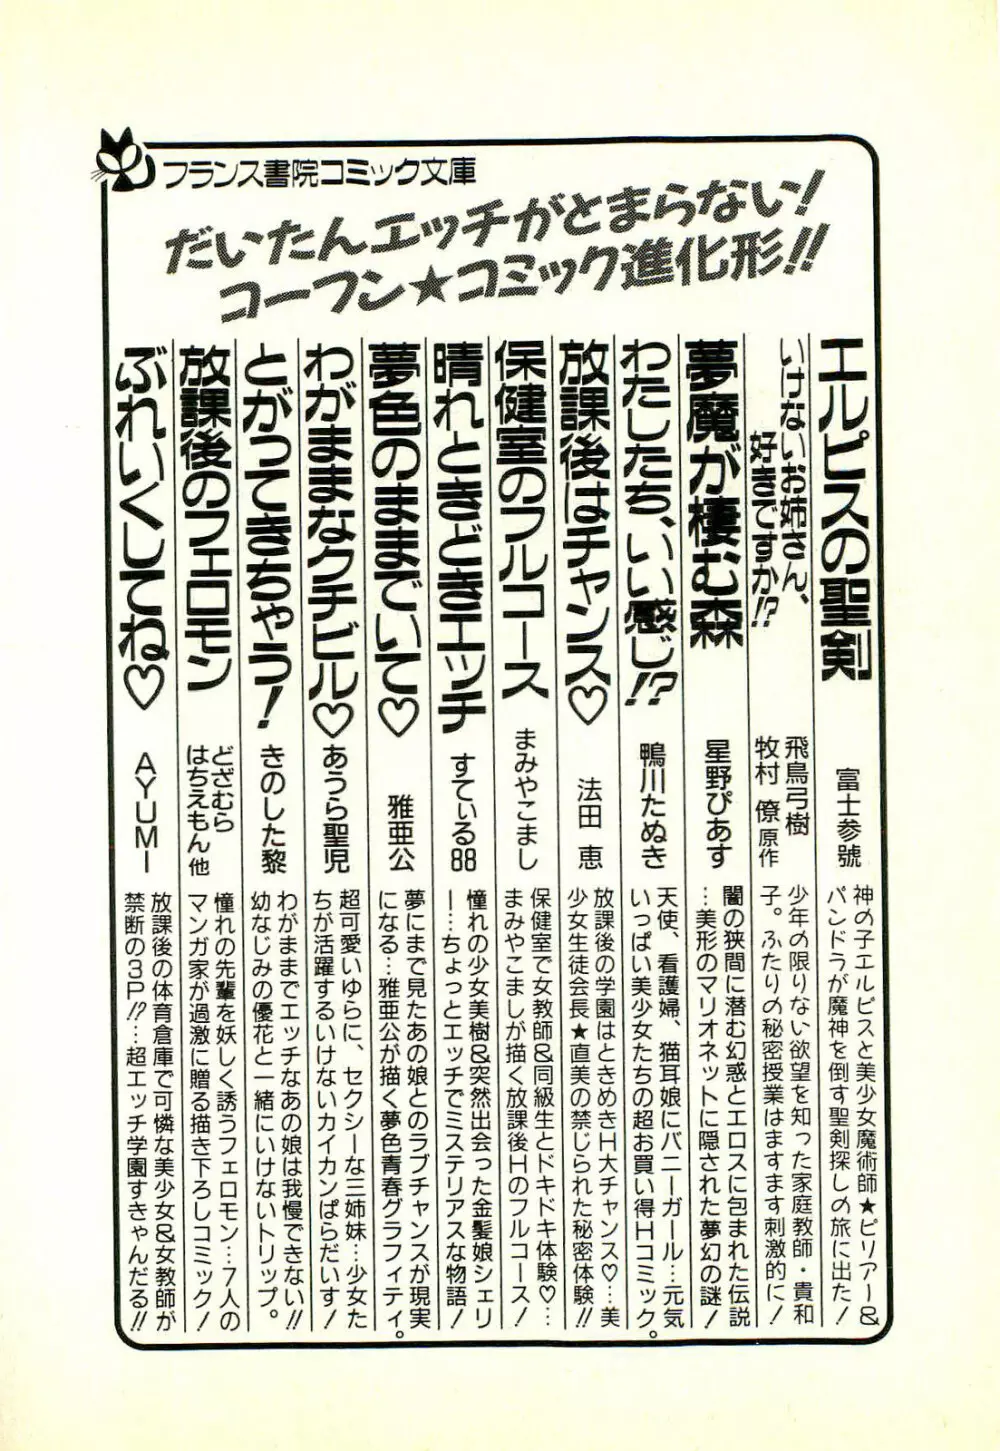 フランス書院コミック文庫
だいたんエッチがとまらない!
コーフン★コミック進化形!!
エルピスの聖剣
富士参號
神の子エルピスと美少女魔術師★ピリアー&
パンドラが魔神を倒す聖剣探しの旅に出た!
いけないお姉さん、
好きですか!?
飛鳥弓樹
牧村 僚 原作
少年の限りない欲望を知った家庭教師・貴和
子。ふたりの秘密授業はますます刺激的に!
夢魔が棲む森
星野ぴあす
闇の狭間に潜む幻惑とエロスに包まれた伝説
…美形のマリオネットに隠された夢幻の謎!
わたしたち、いい感じ!?
鴨川たぬき
天使、看護婦、猫耳娘にバニーガール…元気
いっぱい美少女たちの超お買い得Hコミック。
放課後はチャンス♡
法田 恵
放課後の学園はときめきH大チャンス♡…美
少女生徒会長★直美の禁じられた秘密体験!!
保健室のフルコース
まみやこまし
保健室で女教師&同級生とドキドキ体験♡…
まみやこましが描く放課後Hのフルコース!
晴れときどきエッチ
すている88
憧れの少女美樹&突然出会った金髪娘シェリ
ー…ちょっとエッチでミステリアスな物語!
夢色のままでいて♡
雅亜公
夢にまで見たあの娘とのラブチャンスが現実
になる…雅亜公が描く夢色青春グラフィティ。
わがままなクチビル♡
あうら聖児
超可愛いゆらに、セクシーな三姉妹…少女た
ちが活躍するいけないカイカンぱらだいす!
とがってきちゃう!
きのした黎
わがままでエッチなあの娘は我慢できない!!
幼なじみの優花と一緒にいけないトリップ。
放課後のフェロモン
どざむら
はちえもん 他
憧れの先輩を妖しく誘うフェロモン…7人の
マンガ家が過激に贈る描き下ろしコミック!
ぶれいくしてね♡
AYUMI
放課後の体育倉庫で可憐な美少女&女教師が
禁断の3P!?…超エッチ学園すきゃんだる!!